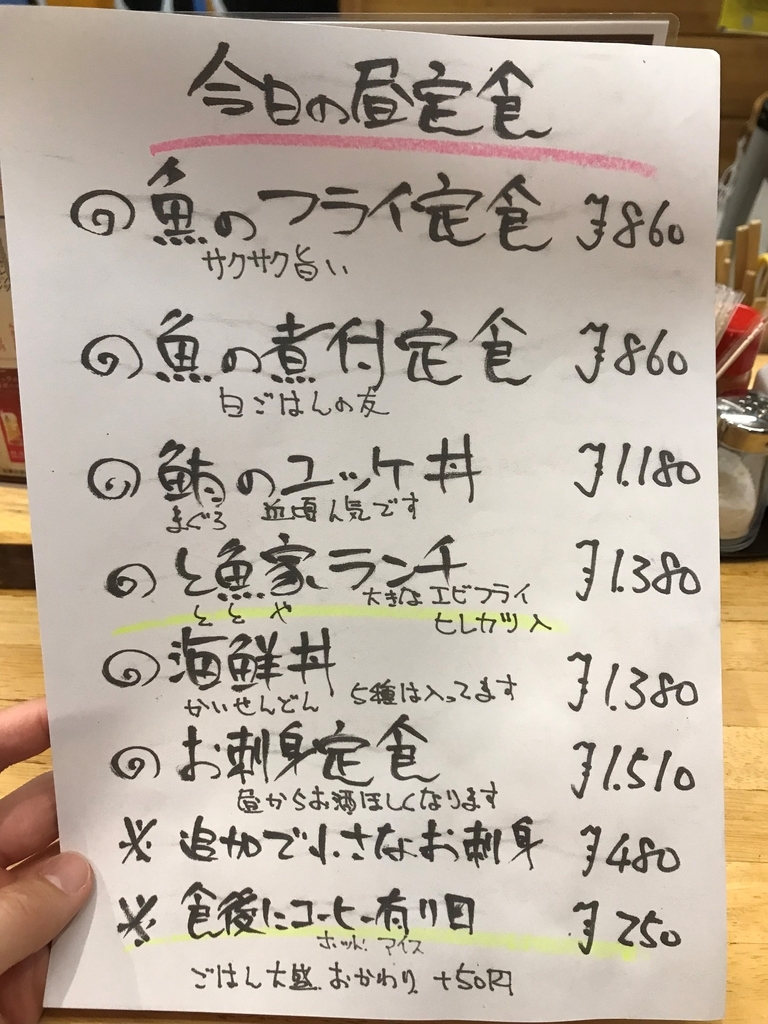 今日の昼定食
魚のフライ定食 ¥860
サクサク旨い
魚の煮付定食 ¥860
白ごはんの友
鮪のユッケ丼 ¥1.180
まぐろ 近頃人気です
と魚家ランチ ¥1.380
ととや 大きなエビフライ
ヒレカツ入
海鮮丼 ¥1.380
かいせんどん 5種は入ってます
お刺身定食 ¥1.510
昼からお酒ほしくなります
※ 追加で小さなお刺身 ¥480
※ 食後にコーヒー有り〼 ¥250
ホット. アイス
ごはん大盛. おかわり +50円